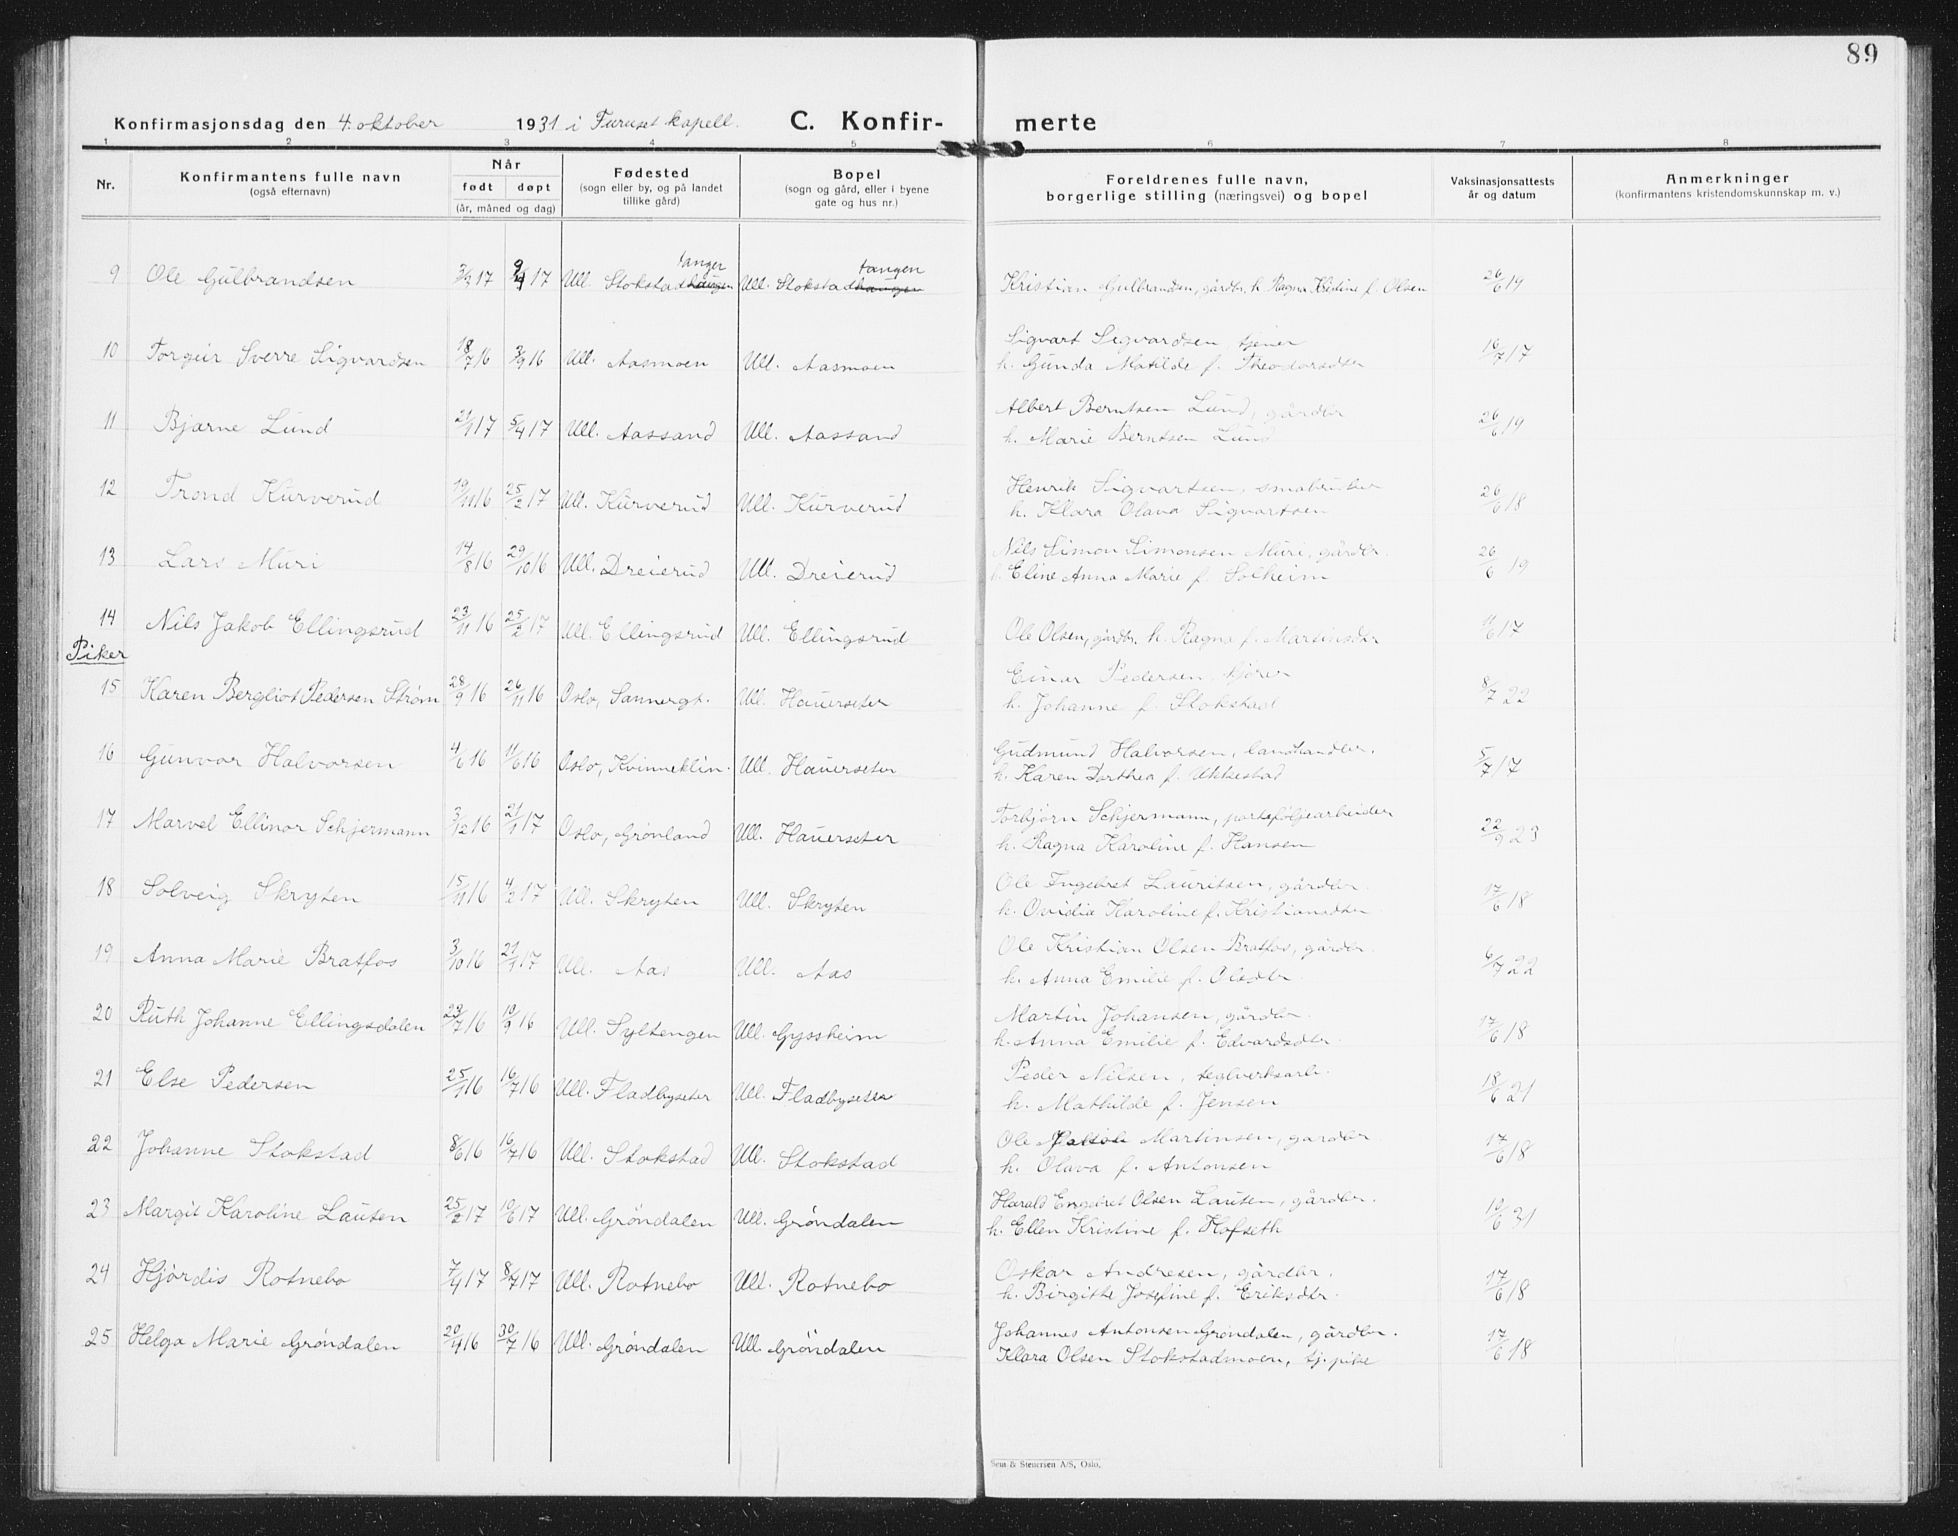 89
Konfirmasjonsdag den 4. oktober 1931 i Furuset kapell. C. Konfir- merte
1 2 3 4 5 6 7 8
Nr. Konfirmantens fulle navn (også efternavn) Når født døpt (år, måned og dag) Fødested (sogn eller by, og på landet tillike gård) Bopel (sogn og gård, eller i byene gate og hus nr.) Foreldrenes fulle navn, borgerlige stilling (næringsvei) og bopel Vaksinasjonsattests år og datum Anmerkninger (konfirmantens kristendomskunnskap m. v.)
tanger tangen
9 Ole Gulbrandsen 3/3 17 17 Ull. Stokstadhaugen Ull. Stokstadhaugen Kristian Gulbrandsen, gårdbr. h. Ragna Kristine f. Olsen 26/6 19
10 Torgeir Sverre Sigvardsen 18/7 16 3/9 16 Ull. Aasmoen Ull. Aasmoen Sigvart Sigvardsen, tjener 16/7 17
h. Gunda Matilde f. Theodorsdtr
11 Bjarne Lund 21/1 17 5/4 17 Ull. Aassand Ull. Aassand Albert Berntsen Lund, gårdbr 26/6 19
h. Marie Berntsen Lund
12 Trond Kurverud 19/11 16 25/2 17 Ull. Kurverud Ull. Kurverud Henrik Sigvartsen, småbruker 26/6 18
h. Klara Olava Sigvartsen
13 Lars Muri 14/8 16 29/10 16 Ull. Dreierud Ull. Dreierud Nils Simon Simonsen Muri, gårdbr. 26/6 19
h. Eline Anna Marie f. Solheim
14 Nils Jakob Ellingsrud 23/11 16 25/2 17 Ull. Ellingsrud Ull. Ellingsrud Ole Olsen, gårdbr. h. Ragna f. Martinsdtr 11/6 17
Piker
15 Karen Bergliot Pedersen Strøm 28/9 16 26/11 16 Oslo, Sannergt. Ull. Hauerseter Einar Pedersen, kjører 8/7 22
h. Johanne f. Stokstad
16 Gunvor Halvorsen 4/6 16 11/6 16 Oslo, Kvinneklin. Ull. Hauerseter Gudmund Halvorsen, landhandler. 5/7 17
h. Karen Dorthea f. Ukkestad
17 Marvel Ellinor Schjermann 3/12 16 21/1 17 Oslo, Grønland Ull. Hauerseter Torbjørn Schjermann, porteføljearbeider 22/9 23
h. Ragna Karoline f. Hansen
18 Solveig Skryten 15/11 16 4/2 17 Ull. Skryten Ull. Skryten Ole Ingebret Lauritsen, gårdbr. 17/6 18
h. Ovidia Karoline f. Kristiansdtr
19 Anna Marie Bratfos 3/10 16 21/1 17 Ull. Aas Ull. Aas Ole Kristian Olsen Bratfos, gårdbr. 6/7 22
h. Anna Emilie f. Olsdtr.
20 Ruth Johanne Ellingsdalen 23/7 16 10/9 16 Ull. Syltengen Ull. Gyssheim Martin Johansen, gårdbr. 17/6 18
h. Anna Emilie f. Edvardsdtr.
21 Else Pedersen 25/1 16 16/7 16 Ull. Fladbyseter Ull. Fladbyseter Peder Nilsen, teglverksarb. 18/6 21
h. Mathilde f. Jensen
22 Johanne Stokstad 8/6 16 16/7 16 Ull. Stokstad Ull. Stokstad Ole Martinsen, gårdbr. 17/6 18
h. Olava f. Antonsen
23 Margit Karoline Lautsen 25/2 17 10/6 17 Ull. Grøndalen Ull. Grøndalen Harald Engebret Olsen Lautsen, gårdbr. 10/6 31
h. Ellen Kristine f. Hofseth
24 Hjørdis Rotnebo 7/4 17 8/7 17 Ull. Rotnebo Ull. Rotnebo Oskar Andresen, gårdbr. 17/6 18
h. Birgitte Josefine f. Eriksdtr.
25 Helga Marie Grøndalen 20/4 16 30/7 16 Ull. Grøndalen Ull. Grøndalen Johannes Antonsen Grøndalen, gårdbr. 17/6 18
Klara Olsen Stokstadmoen, tj.pike
Sem & Stenersen A/S, Oslo.